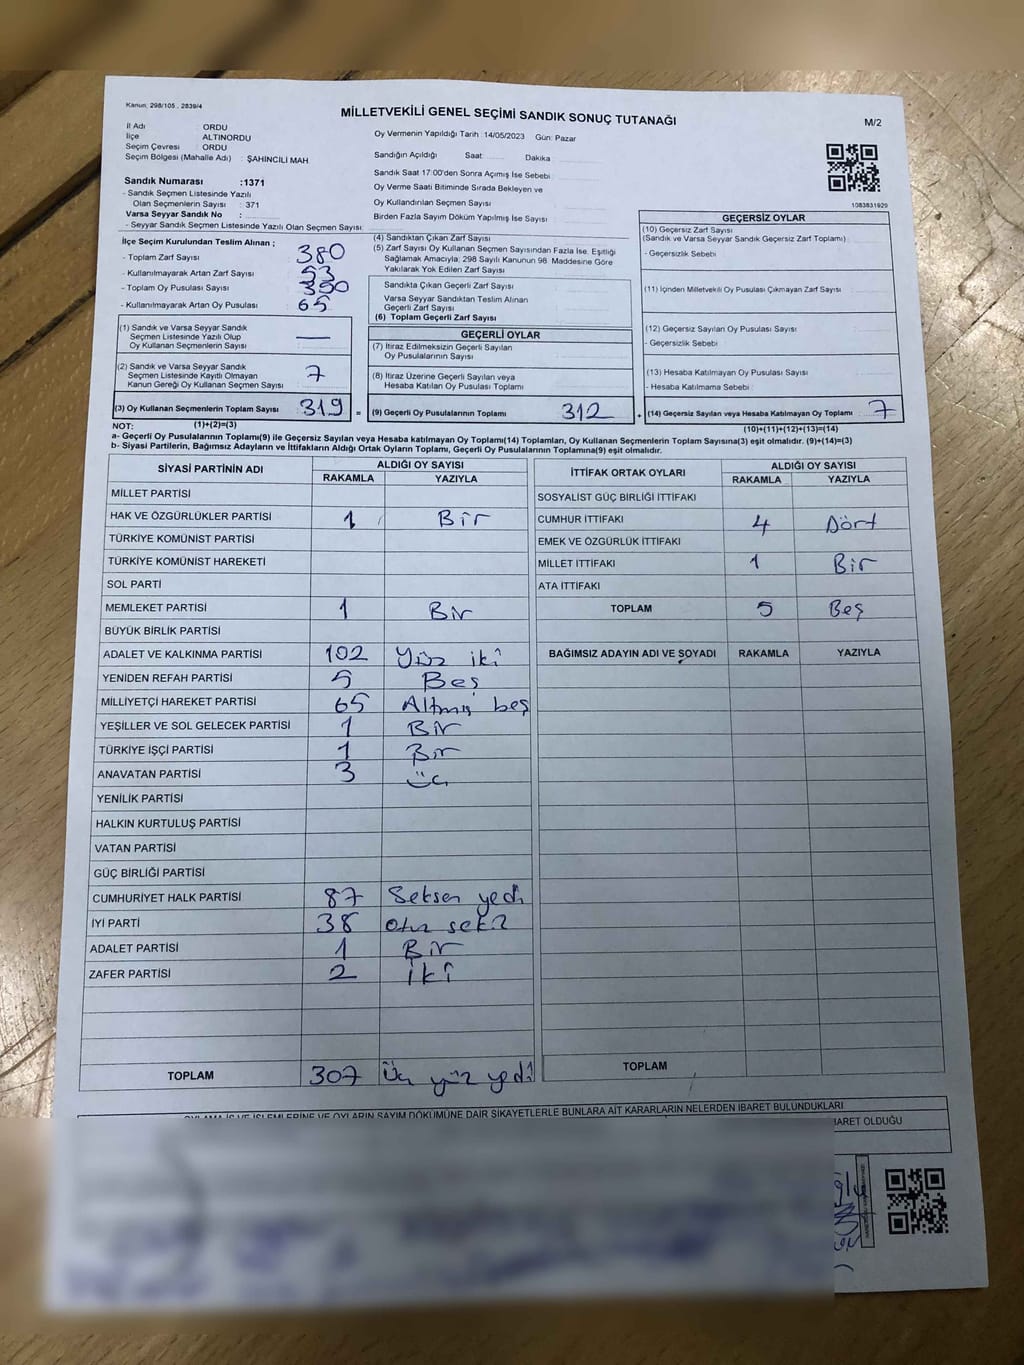 Kanun: 298/105 , 2839/4
MİLLETVEKİLİ GENEL SEÇİMİ SANDIK SONUÇ TUTANAĞI
M/2
İl Adı : ORDU
İlçe : ALTINORDU
Seçim Çevresi : ORDU
Seçim Bölgesi (Mahalle Adı) : ŞAHİNCİLİ MAH
Oy Vermenin Yapıldığı Tarih :14/05/2023 Gün: Pazar
Sandığın Açıldığı Saat Dakika
Sandık Saat 17:00'den Sonra Açımış İse Sebebi
Oy Verme Saati Bitiminde Sırada Bekleyen ve
Oy Kullandırılan Seçmen Sayısı
Birden Fazla Sayım Döküm Yapılmış İse Sayısı
1083831929
Sandık Numarası :1371
- Sandık Seçmen Listesinde Yazılı
Olan Seçmenlerin Sayısı : 371
Varsa Seyyar Sandık No :
- Seyyar Sandık Seçmen Listesinde Yazılı Olan Seçmen Sayısı
İlçe Seçim Kurulundan Teslim Alınan ;
- Toplam Zarf Sayısı : 380
- Kullanılmayarak Artan Zarf Sayısı : 53
- Toplam Oy Pusulası Sayısı :
- Kullanılmayarak Artan Oy Pusulası : 65
(1) Sandık ve Varsa Seyyar Sandık
Seçmen Listesinde Yazılı Olup
Oy Kullanan Seçmenlerin Sayısı : —
(2) Sandık ve Varsa Seyyar Sandık
Seçmen Listesinde Kayıtlı Olmayan
Kanun Gereği Oy Kullanan Seçmen Sayısı : 7
(3) Oy Kullanan Seçmenlerin Toplam Sayısı : 319 =
(4) Sandıktan Çıkan Zarf Sayısı
(5) Zarf Sayısı Oy Kullanan Seçmen Sayısından Fazla İse, Eşitliği
Sağlamak Amacıyla; 298 Sayılı Kanunun 98. Maddesine Göre
Yakılarak Yok Edilen Zarf Sayısı
Sandıkta Çıkan Geçerli Zarf Sayısı
Varsa Seyyar Sandıktan Teslim Alınan
Geçerli Zarf Sayısı
(6) Toplam Geçerli Zarf Sayısı
GEÇERLİ OYLAR
(7) İtiraz Edilmeksizin Geçerli Sayılan
Oy Pusulalarının Sayısı
(8) İtiraz Üzerine Geçerli Sayılan veya
Hesaba Katılan Oy Pusulası Toplamı
(9) Geçerli Oy Pusulalarının Toplamı 312 +
GEÇERSİZ OYLAR
(10) Geçersiz Zarf Sayısı
(Sandık ve Varsa Seyyar Sandık Geçersiz Zarf Toplamı)
- Geçersizlik Sebebi
(11) İçinden Milletvekili Oy Pusulası Çıkmayan Zarf Sayısı
(12) Geçersiz Sayılan Oy Pusulası Sayısı
- Geçersizlik Sebebi
(13) Hesaba Katılmayan Oy Pusulası Sayısı
- Hesaba Katılmama Sebebi
(14) Geçersiz Sayılan veya Hesaba Katılmayan Oy Toplamı : 7
NOT: (1)+(2)=(3)
(10)+(11)+(12)+(13)=(14)
a- Geçerli Oy Pusulalarının Toplamı(9) ile Geçersiz Sayılan veya Hesaba katılmayan Oy Toplamı(14) Toplamları, Oy Kullanan Seçmenlerin Toplam Sayısına(3) eşit olmalıdır. (9)+(14)=(3)
b- Siyasi Partilerin, Bağımsız Adayların ve İttifakların Aldığı Ortak Oyların Toplamı, Geçerli Oy Pusulalarının Toplamına(9) eşit olmalıdır.
SİYASİ PARTİNİN ADI ALDIĞI OY SAYISI
RAKAMLA YAZIYLA
MİLLET PARTİSİ
HAK VE ÖZGÜRLÜKLER PARTİSİ 1 Bir
TÜRKİYE KOMÜNİST PARTİSİ
TÜRKİYE KOMÜNİST HAREKETİ
SOL PARTİ
MEMLEKET PARTİSİ 1 Bir
BÜYÜK BİRLİK PARTİSİ
ADALET VE KALKINMA PARTİSİ 102 Yüz iki
YENİDEN REFAH PARTİSİ 5 Beş
MİLLİYETÇİ HAREKET PARTİSİ 65 Altmış beş
YEŞİLLER VE SOL GELECEK PARTİSİ 1 Bir
TÜRKİYE İŞÇİ PARTİSİ 1 Bir
ANAVATAN PARTİSİ 3 üç
YENİLİK PARTİSİ
HALKIN KURTULUŞ PARTİSİ
VATAN PARTİSİ
GÜÇ BİRLİĞİ PARTİSİ
CUMHURİYET HALK PARTİSİ 87 Seksen yedi
İYİ PARTİ 38 Otuz sekiz
ADALET PARTİSİ 1 Bir
ZAFER PARTİSİ 2 İki
TOPLAM 307 Üç yüz yedi
İTTİFAK ORTAK OYLARI ALDIĞI OY SAYISI
RAKAMLA YAZIYLA
SOSYALİST GÜÇ BİRLİĞİ İTTİFAKI
CUMHUR İTTİFAKI 4 Dört
EMEK VE ÖZGÜRLÜK İTTİFAKI
MİLLET İTTİFAKI 1 Bir
ATA İTTİFAKI
TOPLAM 5 Beş
BAĞIMSIZ ADAYIN ADI VE SOYADI RAKAMLA YAZIYLA
TOPLAM
OYLAMA İŞ VE İŞLEMLERİNE VE OYLARIN SAYIM DÖKÜMÜNE DAİR ŞİKAYETLERLE BUNLARA AİT KARARLARIN NELERDEN İBARET BULUNDUKLARI
OLDUĞU